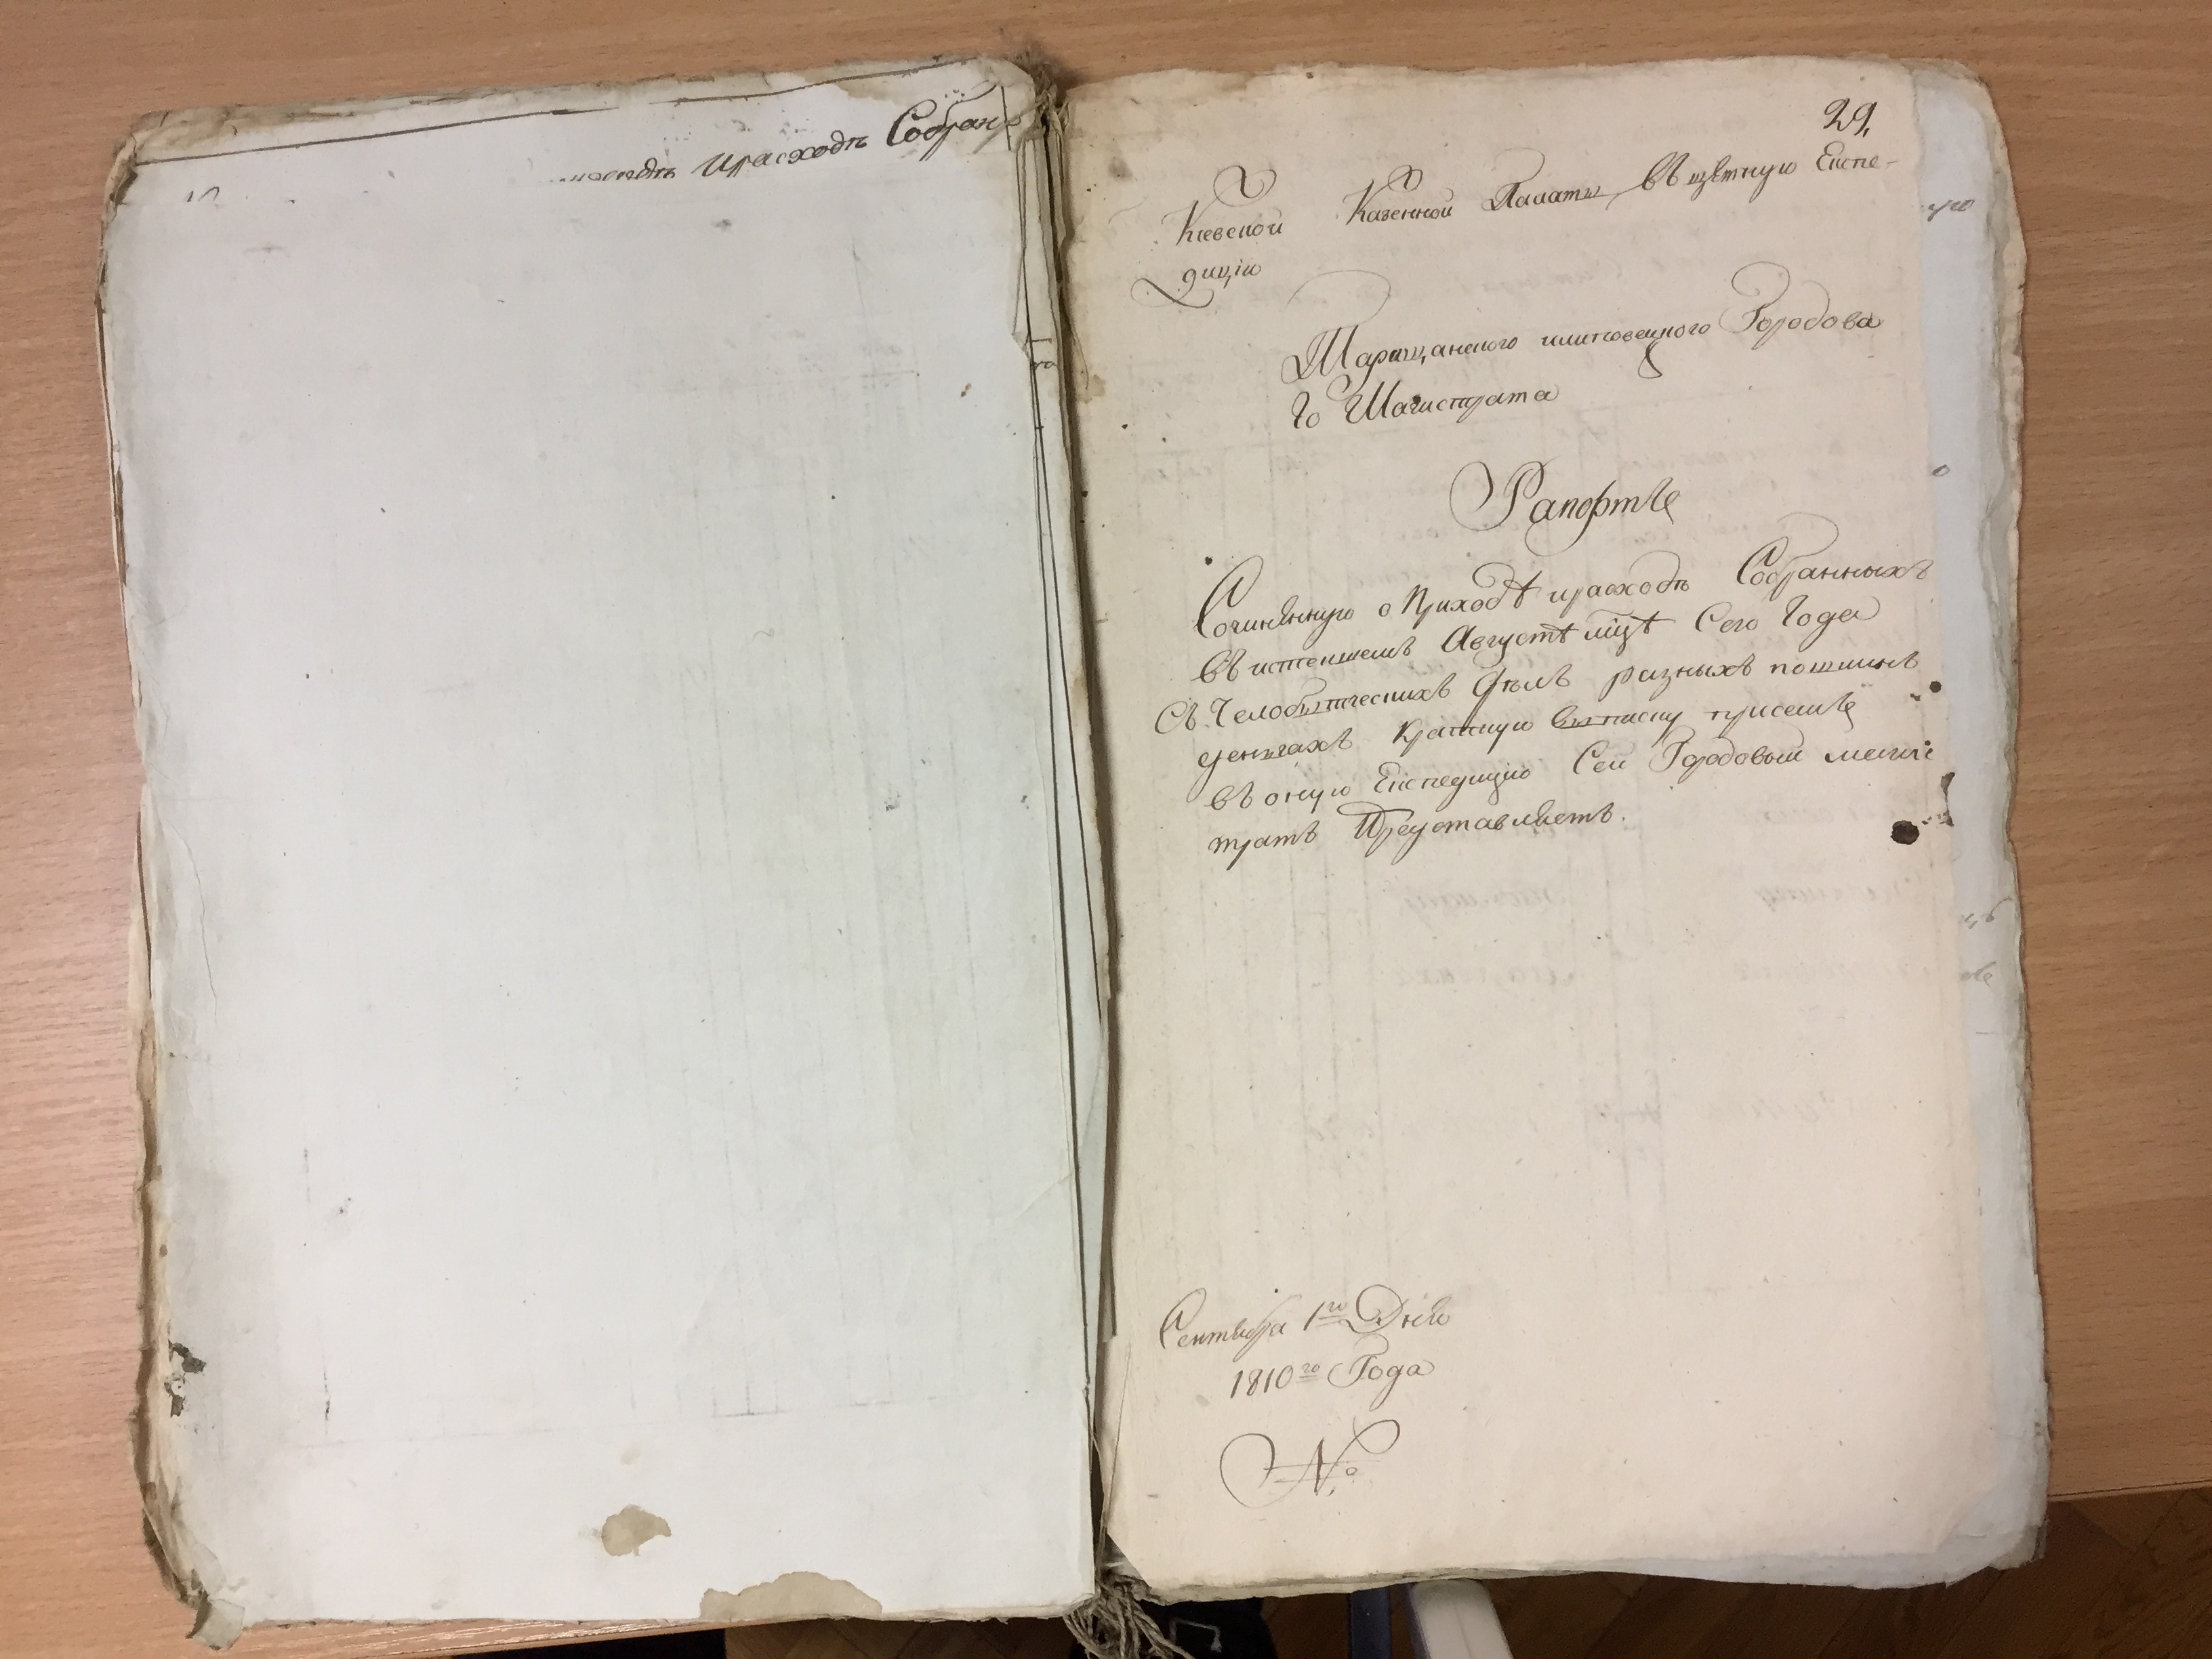 ирасходъ Собран
29.
Киевской Казенной Палаты въ щетную Експе-
дицію
Таращанского Городова
го Магистрата
Рапортъ
Сочинѣнную о приходѣ ирасходѣ Собранныхъ
въ истекшемъ Августѣ мцѣ Сего Года
Съ Челобитческихъ Дѣлъ разныхъ пошлинъ
денгахъ Краткую выписку присемъ
въ оную Експедицію Сей Городовый магис
тратъ Представляетъ.
Сентября 1го Дня
1810го Года
№